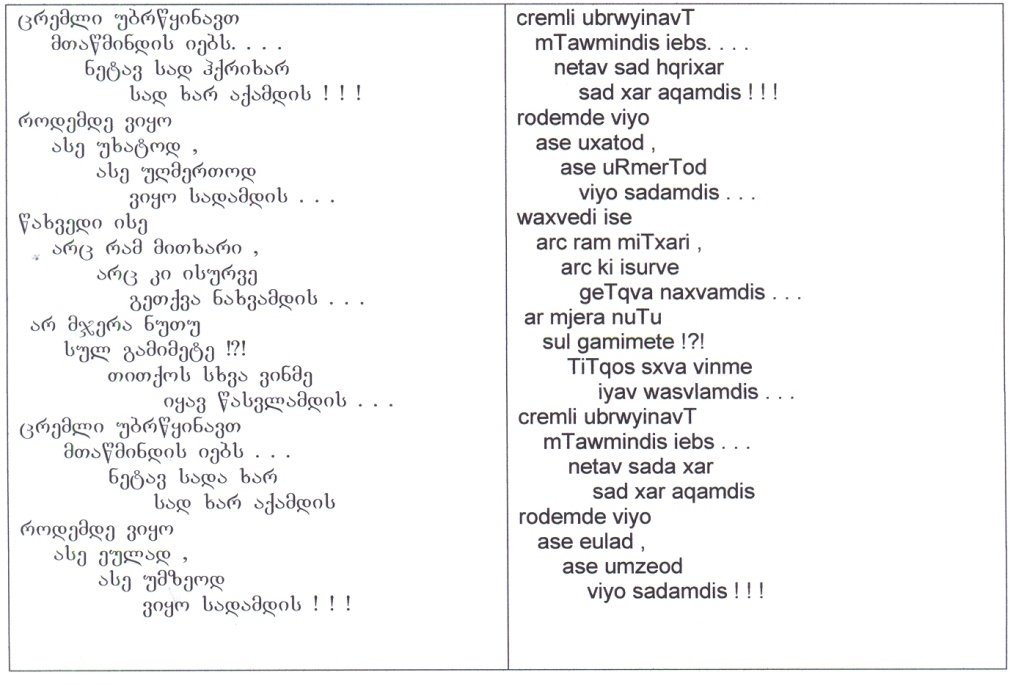 ცრემლი უბრწყინავთ
მთაწმინდის იებს. . . .
ნეტავ სად ჰქრიხარ
სად ხარ აქამდის ! ! !
როდემდე ვიყო
ასე უხატოდ ,
ასე უღმერთოდ
ვიყო სადამდის . . .
წახვედი ისე
არც რამ მითხარი ,
არც კი ისურვე
გეთქვა ნახვამდის . . .
არ მჯერა ნუთუ
სულ გამიმეტე !?!
თითქოს სხვა ვინმე
იყავ წასვლამდის . . .
ცრემლი უბრწყინავთ
მთაწმინდის იებს . . .
ნეტავ სადა ხარ
სად ხარ აქამდის
როდემდე ვიყო
ასე ეულად ,
ასე უმზეოდ
ვიყო სადამდის ! ! !
cremli ubrwyinavT
mTawmindis iebs. . . .
netav sad hqrixar
sad xar aqamdis ! ! !
rodemde viyo
ase uxatod ,
ase uRmerTod
viyo sadamdis . . .
waxvedi ise
arc ram miTxari ,
arc ki isurve
geTqva naxvamdis . . .
ar mjera nuTu
sul gamimete !?!
TiTqos sxva vinme
iyav wasvlamdis . . .
cremli ubrwyinavT
mTawmindis iebs . . .
netav sada xar
sad xar aqamdis
rodemde viyo
ase eulad ,
ase umzeod
viyo sadamdis ! ! !